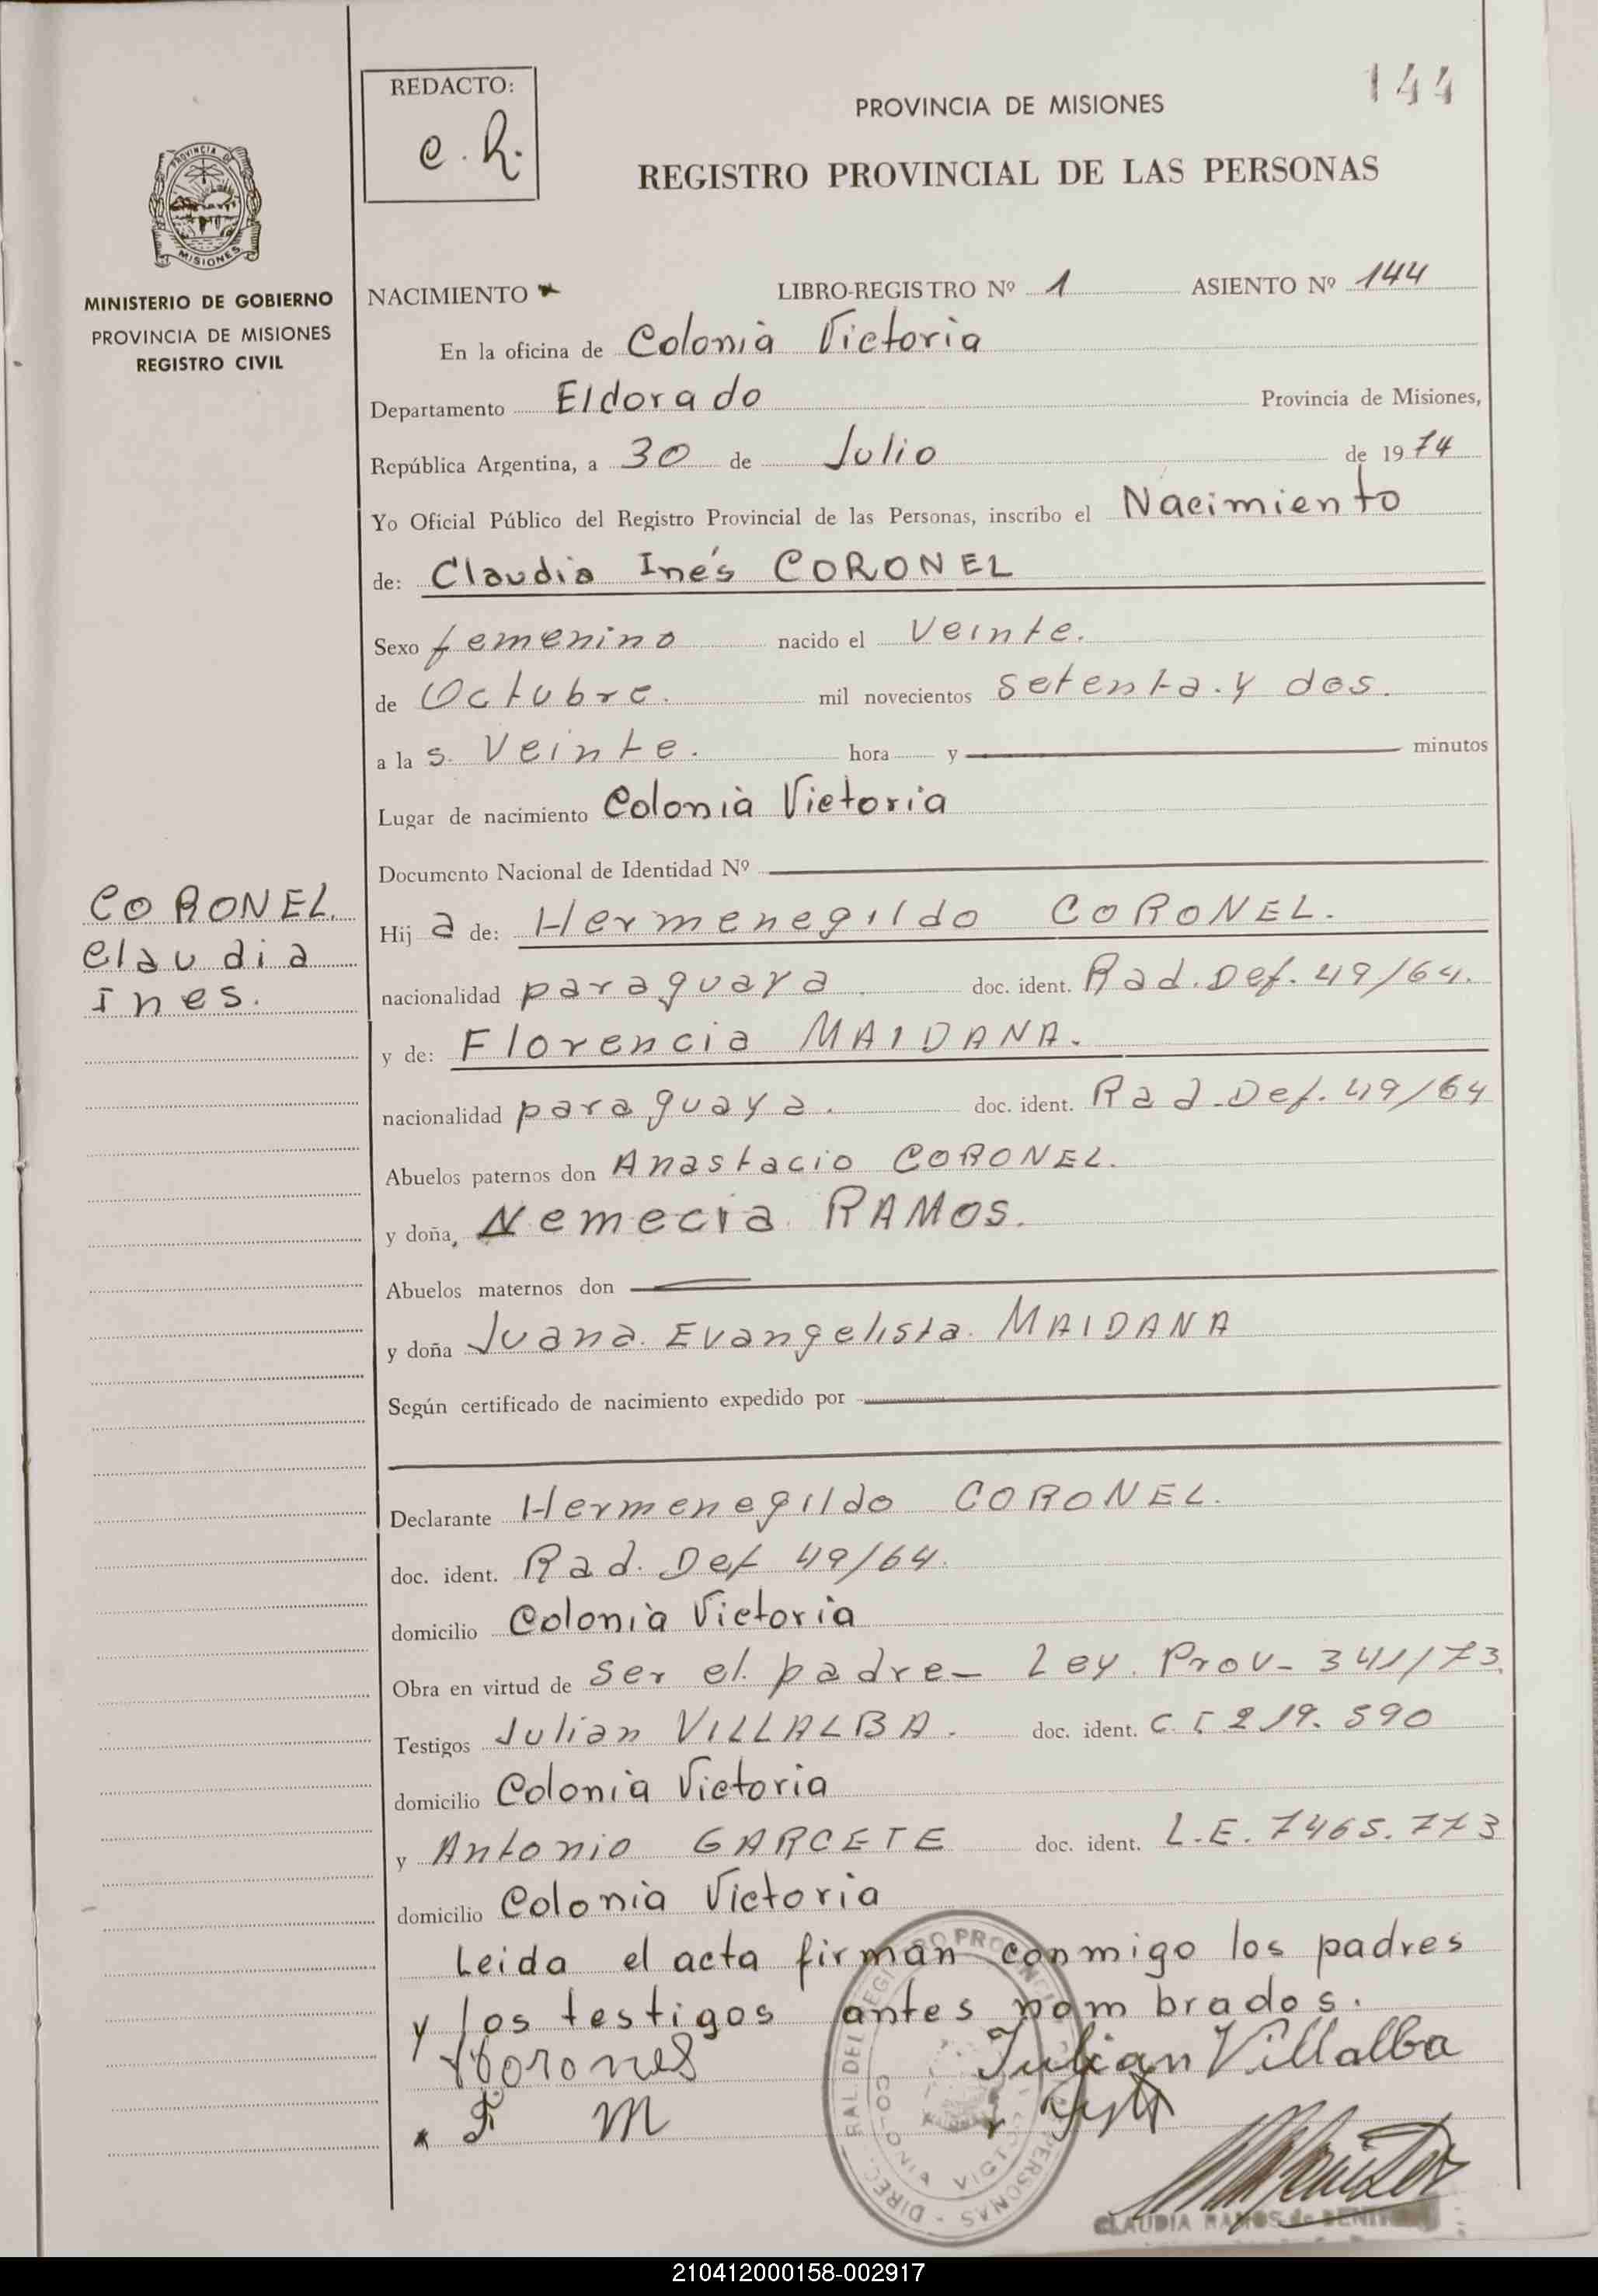 144
REDACTO:
C. R.
PROVINCIA DE MISIONES
REGISTRO PROVINCIAL DE LAS PERSONAS
PROVINCIA DE
MISIONES
MINISTERIO DE GOBIERNO
PROVINCIA DE MISIONES
REGISTRO CIVIL
NACIMIENTO LIBRO-REGISTRO Nº 1 ASIENTO Nº 144
En la oficina de Colonia Victoria
Departamento Eldorado Provincia de Misiones,
República Argentina, a 30 de Julio de 1974
Yo Oficial Público del Registro Provincial de las Personas, inscribo el Nacimiento
de: Claudia Inés CORONEL
Sexo femenino nacido el Veinte.
de Octubre. mil novecientos setenta y dos.
a la s. Veinte. hora y minutos
Lugar de nacimiento Colonia Victoria
Documento Nacional de Identidad Nº
CORONEL.
Claudia
Ines.
Hij a de: Hermenegildo CORONEL.
nacionalidad paraguaya doc. ident. Rad. Def. 49/64.
y de: Florencia MAIDANA.
nacionalidad paraguaya. doc. ident. Rad. Def. 49/64
Abuelos paternos don Anastacio CORONEL.
y doña, Nemecia RAMOS.
Abuelos maternos don
y doña Juana Evangelista MAIDANA
Según certificado de nacimiento expedido por
Declarante Hermenegildo CORONEL.
doc. ident. Rad. Def 49/64.
domicilio Colonia Victoria
Obra en virtud de Ser el padre - Ley. Prov- 341/73
Testigos Julian VILLALBA. doc. ident. C. I 219. 590
domicilio Colonia Victoria
y Antonio GARCETE doc. ident. L.E. 7465.773
domicilio Colonia Victoria
Leida el acta firman conmigo los padres
y los testigos antes nombrados.
Julian Villalba
F M
CLAUDIA RAMOS de
210412000158-002917